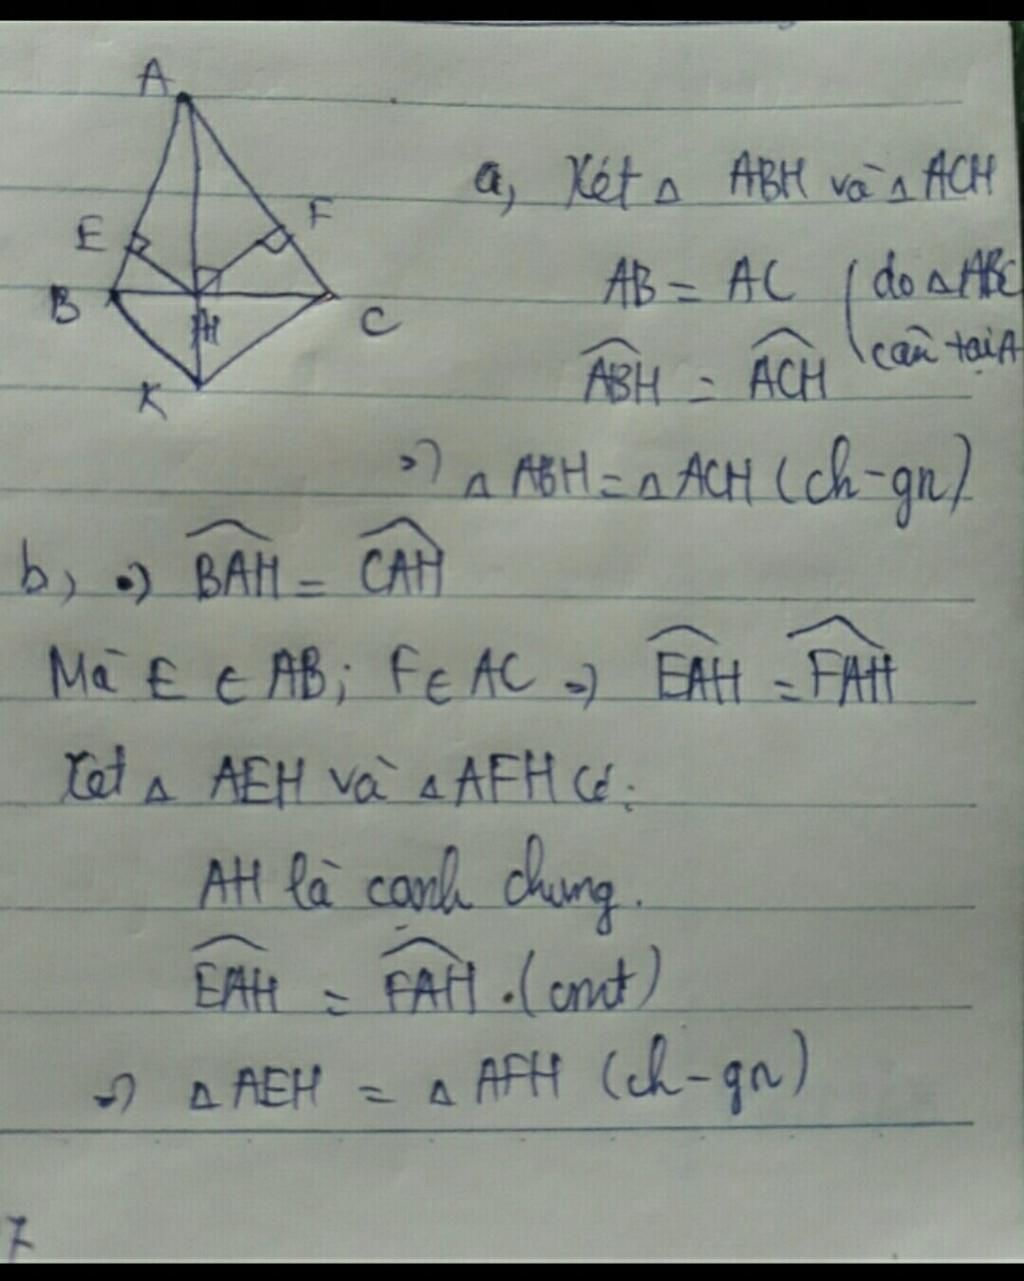 A
E
F
B
H
C
K
a, Xét △ ABH và △ ACH
AB = AC (do △ABC
cân tại A
ABH = ACH
=> △ ABH = △ ACH (ch-gn)
b, => BAH = CAH
Mà E ∈ AB; F ∈ AC => EAH = FAH
Xét △ AEH và △ AFH có:
AH là cạnh chung.
EAH = FAH . (cmt)
=> △ AEH = △ AFH (ch-gn)
7